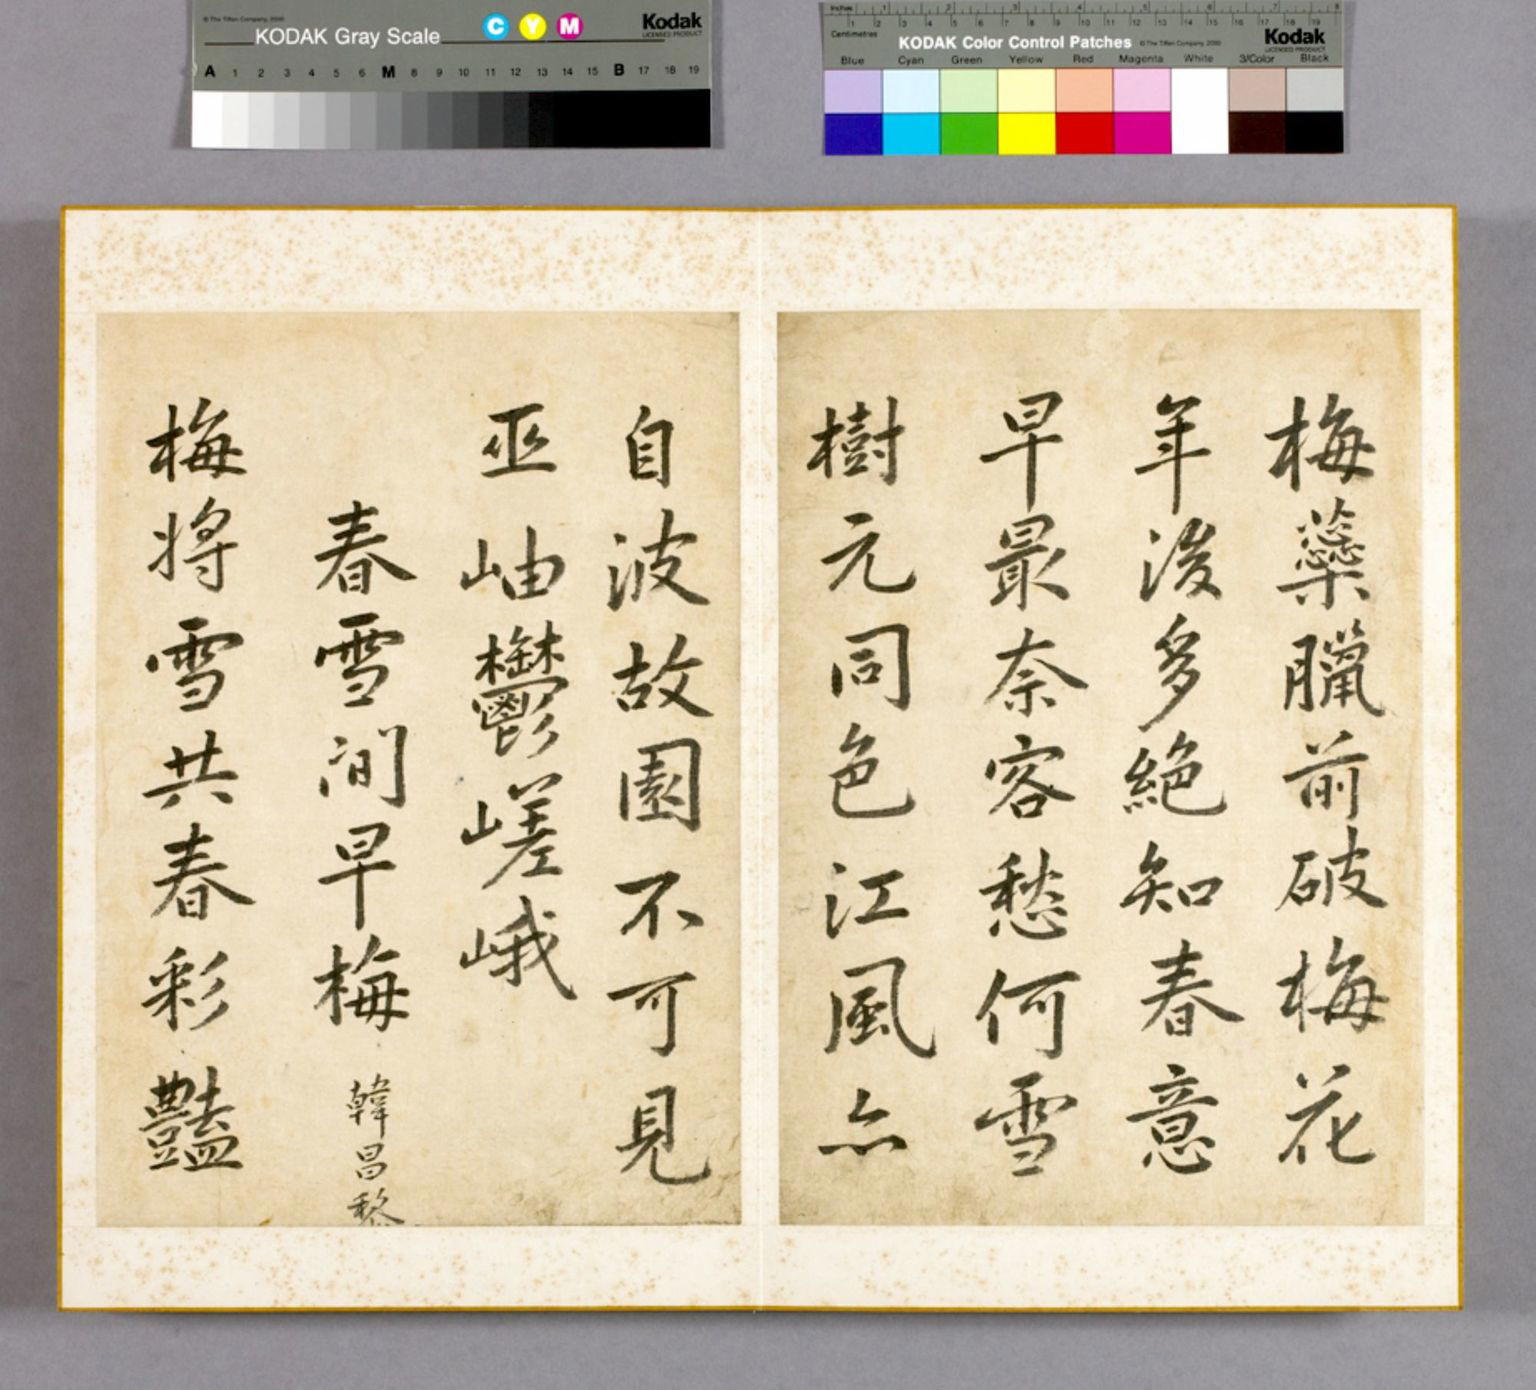 © The Tiffen Company, 2000
KODAK Gray Scale
C Y M
Kodak
LICENSED PRODUCT
A 1 2 3 4 5 6 M 8 9 10 11 12 13 14 15 B 17 18 19
Inches 1 2 3 4 5 6 7 8
Centimetres 1 2 3 4 5 6 7 8 9 10 11 12 13 14 15 16 17 18 19
KODAK Color Control Patches
© The Tiffen Company, 2000
Kodak
LICENSED PRODUCT
Blue Cyan Green Yellow Red Magenta White 3/Color Black
梅蘂臘前破梅花
年後多絕知春意
早最奈客愁何雪
樹元同色江風亦
自波故園不可見
巫岫鬱嵯峨
春雪間早梅 韓昌黎
梅將雪共春彩豔